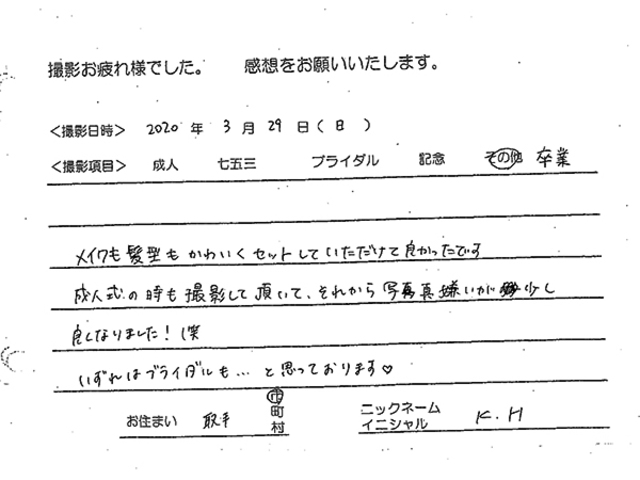 撮影お疲れ様でした。 感想をお願いいたします。
<撮影日時> 2020 年 3 月 29 日(日)
<撮影項目> 成人 七五三 ブライダル 記念 その他 卒業
メイクも髪型もかわいくセットしていただけて良かったです
成人式の時も撮影して頂いて、それから写真嫌いが少し
良くなりました!(笑
いずれはブライダルも…と思っております♡
お住まい 取手 市町村 ニックネーム イニシャル K.H